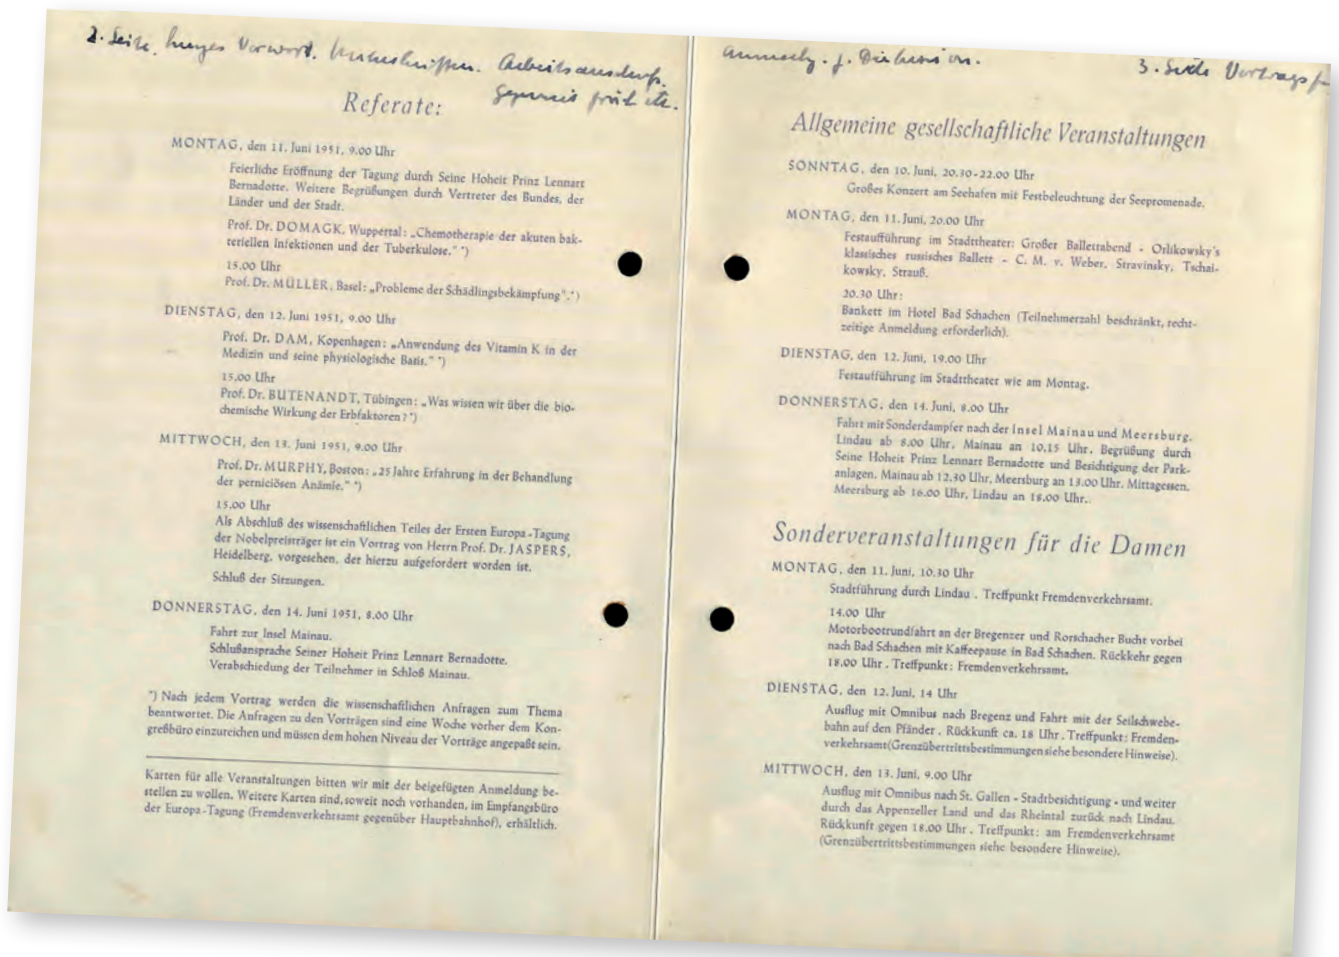 2. Seite. kurzes Vorwort.
3. Seite
Referate:
MONTAG, den 11. Juni 1951, 9.00 Uhr
Feierliche Eröffnung der Tagung durch Seine Hoheit Prinz Lennart
Bernadotte. Weitere Begrüßungen durch Vertreter des Bundes, der
Länder und der Stadt.
Prof. Dr. DOMAGK, Wuppertal: „Chemotherapie der akuten bak-
teriellen Infektionen und der Tuberkulose." *)
15.00 Uhr
Prof. Dr. MÜLLER, Basel: „Probleme der Schädlingsbekämpfung".*)
DIENSTAG, den 12. Juni 1951, 9.00 Uhr
Prof. Dr. DAM, Kopenhagen: „Anwendung des Vitamin K in der
Medizin und seine physiologische Basis." *)
15.00 Uhr
Prof. Dr. BUTENANDT, Tübingen: „Was wissen wir über die bio-
chemische Wirkung der Erbfaktoren? *)
MITTWOCH, den 13. Juni 1951, 9.00 Uhr
Prof. Dr. MURPHY, Boston: „25 Jahre Erfahrung in der Behandlung
der perniciösen Anämie." *)
15.00 Uhr
Als Abschluß des wissenschaftlichen Teiles der Ersten Europa-Tagung
der Nobelpreisträger ist ein Vortrag von Herrn Prof. Dr. JASPERS,
Heidelberg, vorgesehen, der hierzu aufgefordert worden ist.
Schluß der Sitzungen.
DONNERSTAG, den 14. Juni 1951, 8.00 Uhr
Fahrt zur Insel Mainau.
Schlußansprache Seiner Hoheit Prinz Lennart Bernadotte.
Verabschiedung der Teilnehmer in Schloß Mainau.
*) Nach jedem Vortrag werden die wissenschaftlichen Anfragen zum Thema
beantwortet. Die Anfragen zu den Vorträgen sind eine Woche vorher dem Kon-
greßbüro einzureichen und müssen dem hohen Niveau der Vorträge angepaßt sein.
Karten für alle Veranstaltungen bitten wir mit der beigefügten Anmeldung be-
stellen zu wollen. Weitere Karten sind, soweit noch vorhanden, im Empfangsbüro
der Europa-Tagung (Fremdenverkehrsamt gegenüber Hauptbahnhof), erhältlich.
Allgemeine gesellschaftliche Veranstaltungen
SONNTAG, den 10. Juni, 20.30-22.00 Uhr
Großes Konzert am Seehafen mit Festbeleuchtung der Seepromenade.
MONTAG, den 11. Juni, 20.00 Uhr
Festaufführung im Stadttheater: Großer Ballettabend - Orlikowsky's
klassisches russisches Ballett - C. M. v. Weber, Stravinsky, Tschai-
kowsky, Strauß.
20.30 Uhr:
Bankett im Hotel Bad Schachen (Teilnehmerzahl beschränkt, recht-
zeitige Anmeldung erforderlich).
DIENSTAG, den 12. Juni, 19.00 Uhr
Festaufführung im Stadttheater wie am Montag.
DONNERSTAG, den 14. Juni, 8.00 Uhr
Fahrt mit Sonderdampfer nach der Insel Mainau und Meersburg.
Lindau ab 8.00 Uhr, Mainau an 10.15 Uhr. Begrüßung durch
Seine Hoheit Prinz Lennart Bernadotte und Besichtigung der Park-
anlagen. Mainau ab 12.30 Uhr, Meersburg an 13.00 Uhr. Mittagessen.
Meersburg ab 16.00 Uhr, Lindau an 18.00 Uhr.
Sonderveranstaltungen für die Damen
MONTAG, den 11. Juni, 10.30 Uhr
Stadtführung durch Lindau . Treffpunkt Fremdenverkehrsamt.
14.00 Uhr
Motorbootrundfahrt an der Bregenzer und Rorschacher Bucht vorbei
nach Bad Schachen mit Kaffeepause in Bad Schachen. Rückkehr gegen
18.00 Uhr . Treffpunkt: Fremdenverkehrsamt.
DIENSTAG, den 12. Juni, 14 Uhr
Ausflug mit Omnibus nach Bregenz und Fahrt mit der Seilschwebe-
bahn auf den Pfänder . Rückkunft ca. 18 Uhr . Treffpunkt: Fremden-
verkehrsamt (Grenzübertrittsbestimmungen siehe besondere Hinweise).
MITTWOCH, den 13. Juni, 9.00 Uhr
Ausflug mit Omnibus nach St. Gallen - Stadtbesichtigung - und weiter
durch das Appenzeller Land und das Rheintal zurück nach Lindau.
Rückkunft gegen 18.00 Uhr . Treffpunkt: am Fremdenverkehrsamt
(Grenzübertrittsbestimmungen siehe besondere Hinweise).